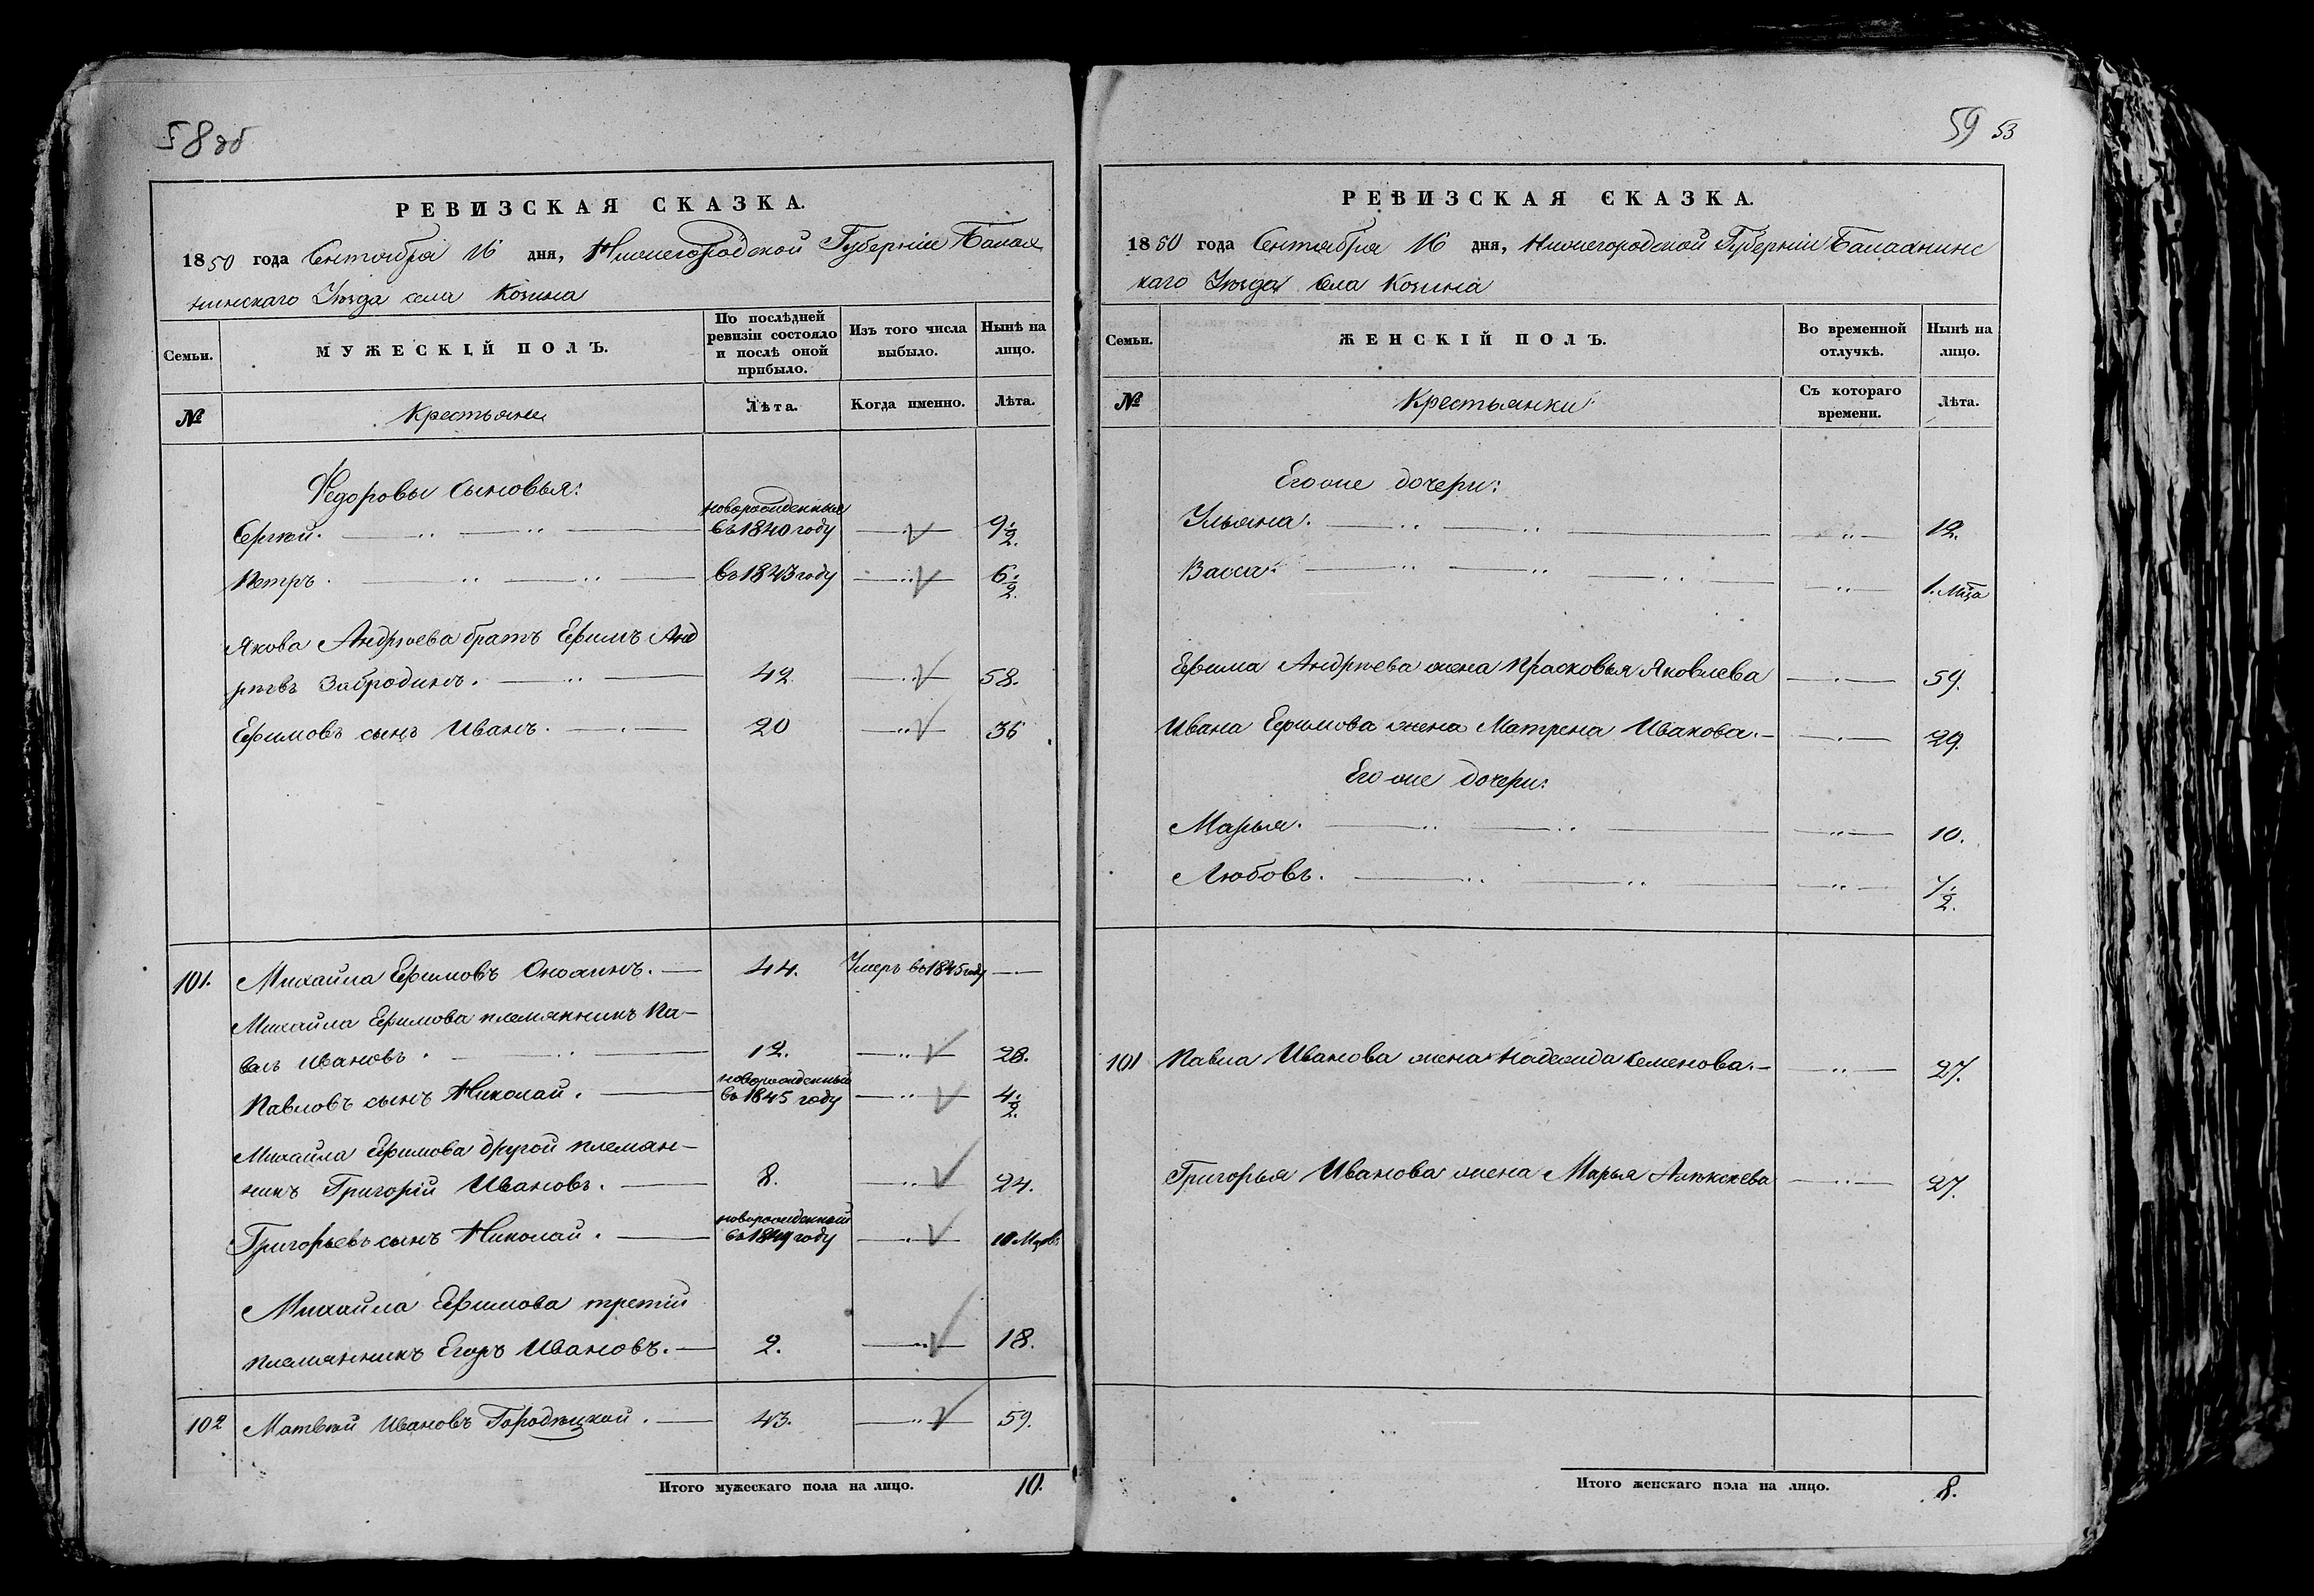 58 об
РЕВИЗСКАЯ СКАЗКА.
1850 года Сентября 16 дня, Нижегородской Губерніи Балах
нинскаго Уѣзда села Козина
Семьи.
МУЖЕСКІЙ ПОЛЪ.
По послѣдней
ревизіи состояло
и послѣ оной
прибыло.
Изъ того числа
выбыло.
Нынѣ на
лицо.
№
Крестьяне
Лѣта.
Когда именно.
Лѣта.
Федоровы сыновья:
новорожденные
Сергѣй. въ 1840 году 9½.
Петръ. въ 1843 году 6½.
Якова Андрѣева братъ Ефимъ Анд
рѣевъ Забродинъ. 42 58.
Ефимовъ сынъ Иванъ. 20 36
101. Михайла Ефимовъ 44. Умеръ въ 1845 году
Михайла Ефимова племянникъ Па-
велъ Ивановъ. 12. 28.
новорожденный
Павловъ сынъ Николай. въ 1845 году 4½.
Михайла Ефимова другой племян-
никъ Григорій Ивановъ. 8. 24.
новорожденный
Григорьевъ сынъ Николай. въ 1849 году 10 Мцовъ
Михайла Ефимова третій
племянникъ Егоръ Ивановъ. 2. 18.
102 Матвѣй Ивановъ Городецкой. 43. 59.
Итого мужескаго пола на лицо. 10.
59 53
РЕВИЗСКАЯ СКАЗКА.
1850 года Сентября 16 дня, Нижегородской Губерніи Балахнинс
каго Уѣзда села Козина
Семьи.
ЖЕНСКІЙ ПОЛЪ.
Во временной
отлучкѣ.
Нынѣ на
лицо.
№
Крестьянки
Съ котораго
времени.
Лѣта.
Его же дочери:
Ульяна. 12.
Васса. 1. Мца
Ефима Андрѣева жена Прасковья Яковлева 59.
Ивана Ефимова жена Матрена Иванова. 29.
Его же дочери:
Марья. 10.
Любовь. ½.
101 Павла Иванова жена Надежда Семенова. 27.
Григорья Иванова жена Марья Алексѣева 27.
Итого женскаго пола на лицо. 8.